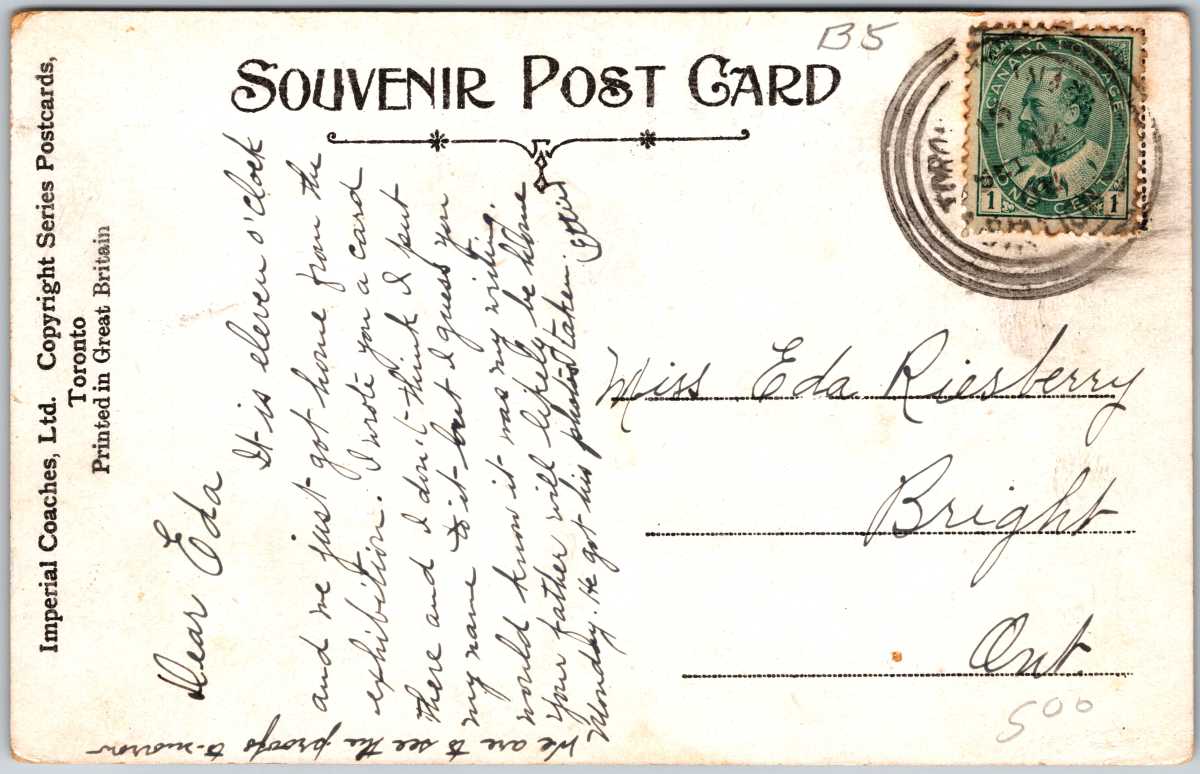 SOUVENIR POST CARD
B5
CANADA POSTAGE
ONE CENT
1 1
Imperial Coaches, Ltd. Copyright Series Postcards,
Toronto
Printed in Great Britain
Dear Eda
It is eleven o'clock
and we just got home from the
exhibition. I wrote you a card
there and I don't think I put
my name to it but I guess you
would know it was my writing.
Your father will likely be home
Monday. He got his photos taken.
We are to see the proofs to-morrow
Miss Eda Riesberry
Bright
Ont.
500